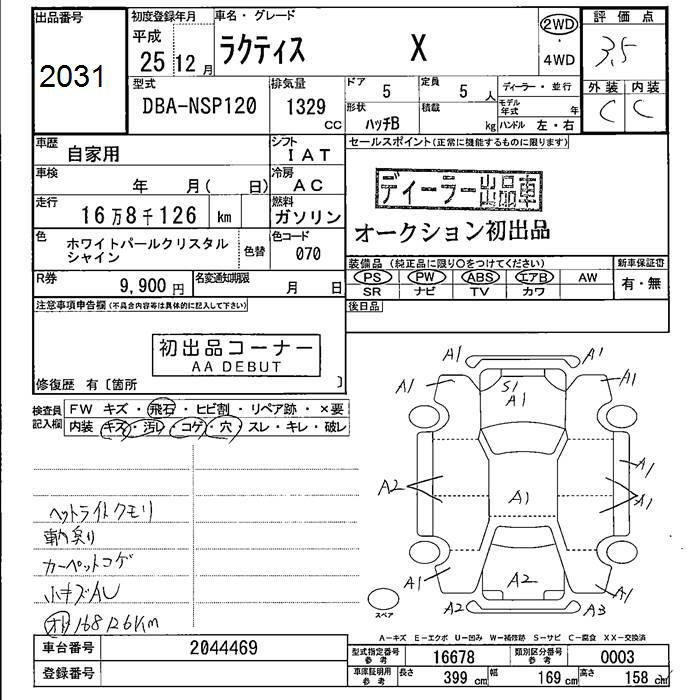 出品番号
2031
初度登録年月
平成
25 12 月
車名・グレード
ラクティス X
2WD
・
4WD
評価点
3.5
型式
DBA-NSP120
排気量
1329
CC
ドア
5
定員
5 人
形状
ハッチB
積載
kg
ディーラー・並行
モデル
年式 年
ハンドル 左・右
外装 内装
C C
車歴
自家用
シフト
IAT
車検
年 月( 日)
冷房
AC
走行
16万8千126 km
燃料
ガソリン
色
ホワイトパールクリスタル
シャイン
色替
色コード
070
R券
9,900 円
名変通知期限
月 日
セールスポイント(正常に機能するものに限ります)
ディーラー出品車
オークション初出品
装備品(純正品に限り○をつけてください)
PS PW ABS エアB AW
SR ナビ TV カワ
新車保証書
有・無
後日品
注意事項申告欄(不具合内容等は具体的に記入して下さい)
初出品コーナー
AA DEBUT
修復歴 有〔箇所 〕
検査員
記入欄
FW キズ・飛石・ヒビ割・リペア跡・×要
内装 キズ・汚レ・コゲ・穴・スレ・キレ・破レ
ヘットライトクモリ
カーペットコゲ
小キズAU
168126Km
A1 A1
A1 S1 A1
A1
A2 A1 A1
A1
A1 A2 A1
A2 A3
スペア
A-キズ E-エクボ U-凹み W-補修跡 S-サビ C-腐食 XX-交換済
車台番号
2044469
登録番号
型式指定番号
参考
16678
類別区分番号
参考
0003
車庫証明用
参考
長さ
399 cm
幅
169 cm
高さ
158 cm